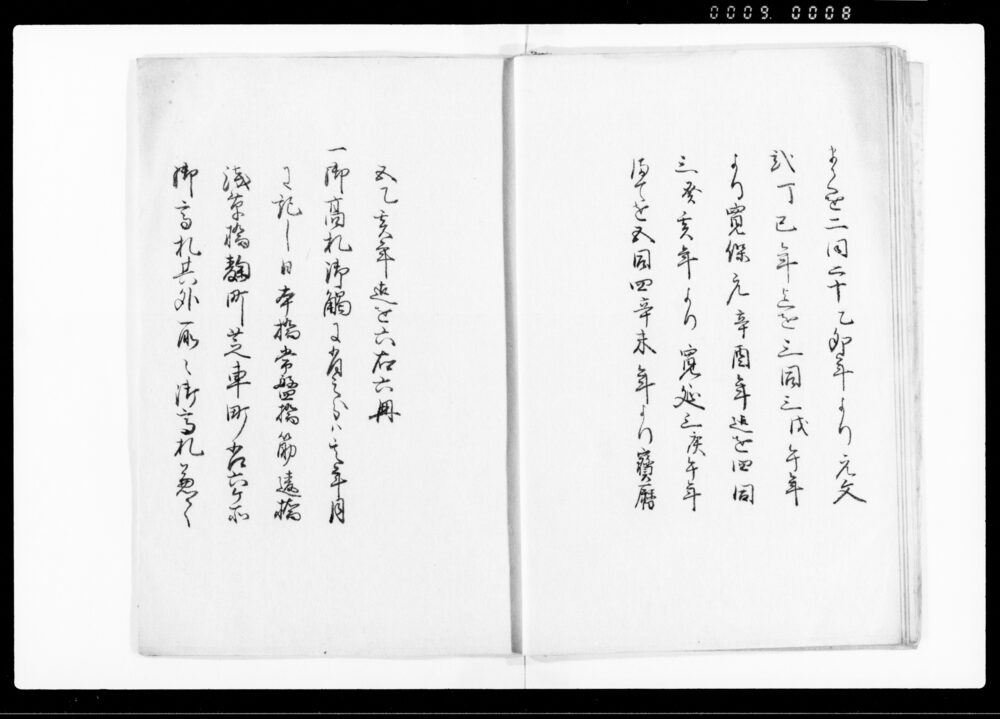 0009 0008
まてを二同二十乙卯年より元文
弐丁巳年迄を三同三戊午年
より寛保元辛酉年迄を四同
三癸亥年より寛延三庚午年
迄を五同四辛未年より寶暦
五乙亥年迄を六右六冊
一御高札御觸ニ有之分ハ其年月
ニ記し日本橋常盤橋筋違橋
浅草橋麹町芝車町右六ケ所
御高札其外所々御高札